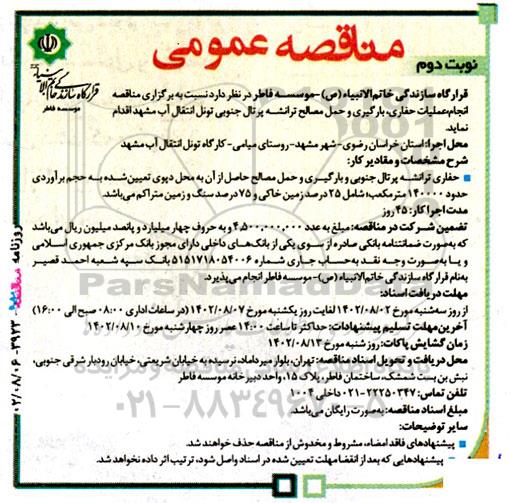 مناقصه عمومی
نوبت دوم
قرارگاه سازندگی خاتم الانبیاء
موسسه فاطر
قرارگاه سازندگی خاتم‌الانبیاء (ص) -موسسه فاطر در نظر دارد نسبت به برگزاری مناقصه
انجام‌عملیات حفاری، بارگیری و حمل مصالح ترانشه پرتال جنوبی تونل انتقال آب مشهد اقدام
نماید.
محل اجرا: استان خراسان رضوی- شهر مشهد- روستای میامی- کارگاه تونل انتقال آب مشهد
شرح مشخصات و مقادیر کار:
حفاری ترانشه پرتال جنوبی و بارگیری و حمل مصالح حاصل از آن به محل دپوی تعیین‌شده به حجم برآوردی
حدود ۱۴۰۰۰۰ مترمکعب؛ شامل ۲۵ درصد زمین خاکی و ۷۵ درصد سنگ و زمین متراکم می‌باشد.
مدت اجرا کار: ۴۵ روز
تضمین شرکت در مناقصه: مبلغ به عدد ۴,۵۰۰,۰۰۰,۰۰۰ و به حروف چهار میلیارد و پانصد میلیون ریال می‌باشد
که به‌صورت ضمانتنامه بانکی صادره از سوی یکی از بانک‌های داخلی دارای مجوز بانک مرکزی جمهوری اسلامی
و یا به‌صورت وجه نقد به‌حساب جاری شماره ۵۱۵۱۷۱۸۰۵۴۰۰۶ بانک سپه شعبه احمد قصیر
به‌نام قرارگاه سازندگی خاتم‌الانبیاء (ص)-موسسه فاطر انجام می‌پذیرد.
مهلت دریافت اسناد:
از روز سه‌شنبه مورخ ۱۴۰۲/۰۸/۰۲ لغایت روز یکشنبه مورخ ۱۴۰۲/۰۸/۰۷ (در ساعات اداری ۰۸:۰۰ صبح الی ۱۶:۰۰)
آخرین مهلت تسلیم پیشنهادات: حداکثر تا ساعت ۱۴:۰۰ عصر روز چهارشنبه مورخ ۱۴۰۲/۰۸/۱۰
زمان گشایش پاکات: روز شنبه مورخ ۱۴۰۲/۰۸/۱۳
محل دریافت و تحویل اسناد مناقصه: تهران، بلوار میرداماد، نرسیده به خیابان شریعتی، خیابان رودبار شرقی جنوبی،
نبش بن بست شمشک، ساختمان فاطر، پلاک ۱۵، واحد دبیرخانه موسسه فاطر
تلفن تماس: ۲۲۲۵۰۳۴۷-۰۲۱ داخلی ۱۰۰۴
مبلغ اسناد مناقصه: به‌صورت رایگان می‌باشد.
سایر توضیحات:
پیشنهادهای فاقد امضاء، مشروط و مخدوش از مناقصه حذف خواهند شد.
پیشنهادهایی که بعد از انقضا مهلت تعیین شده در اسناد واصل شود، ترتیب اثر داده نخواهد شد.
روزنامه
۳۹۲۳ - ۰۲/۰۸/۰۶
ParsNamadData
۰۲۱-۸۸۳۴۹۶۷۰-۵